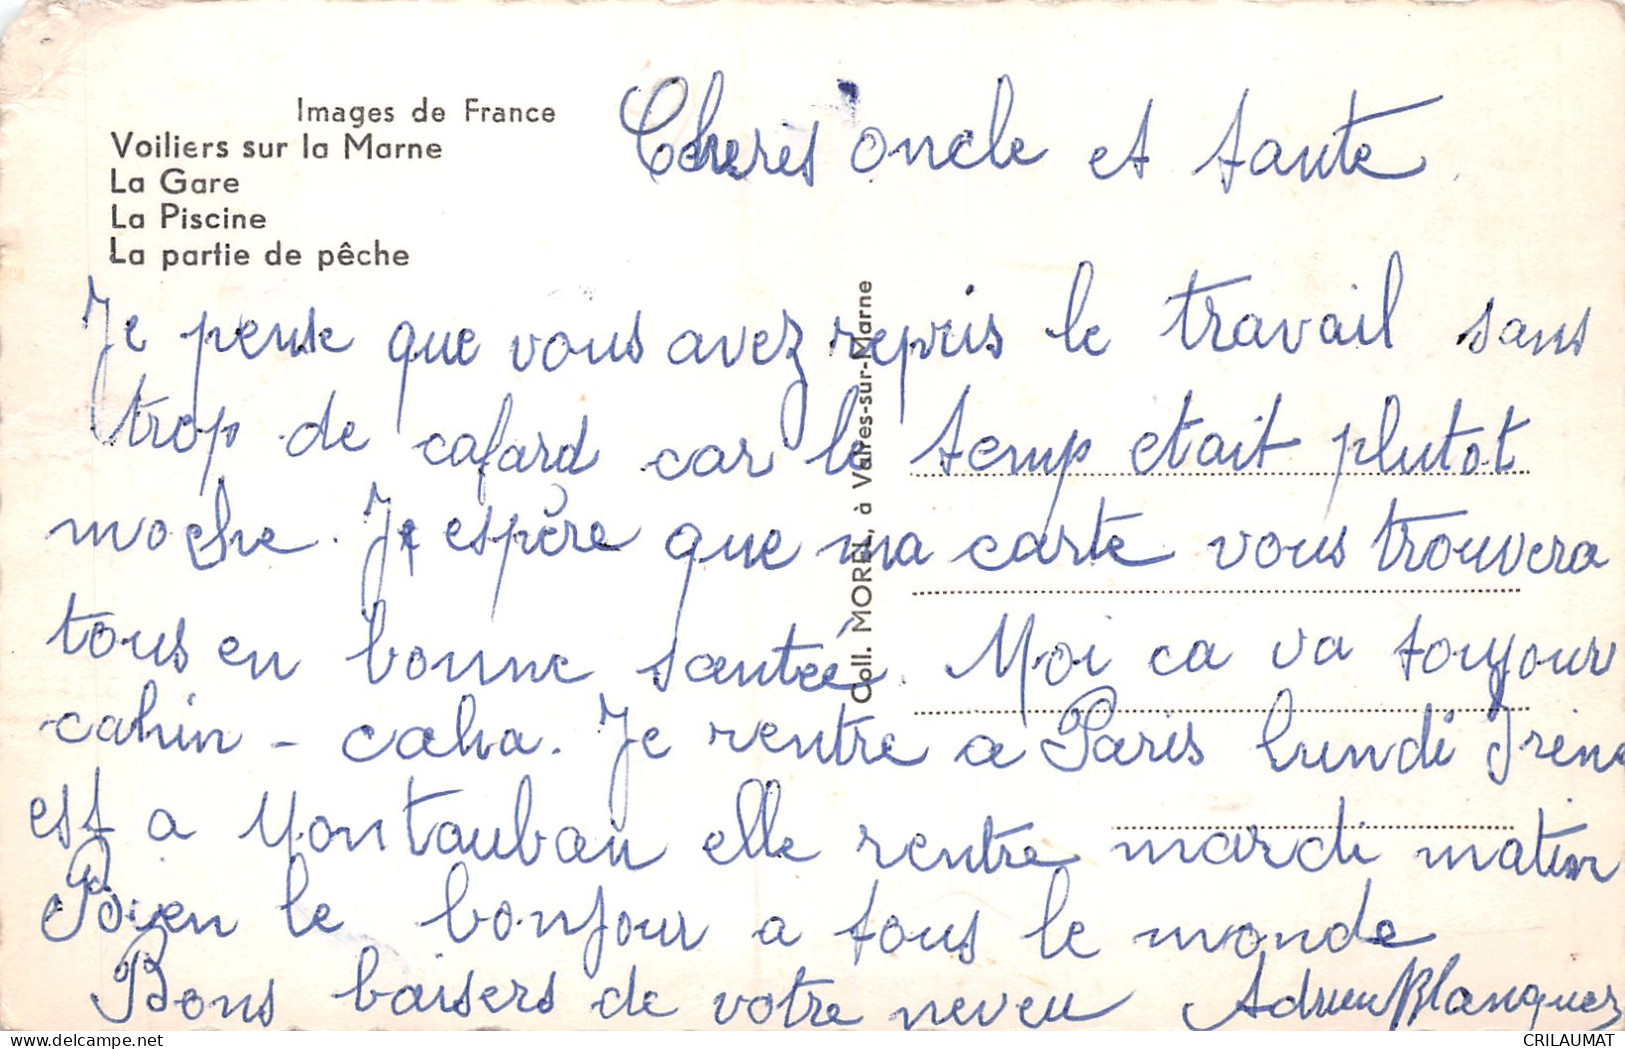 Images de France
Voiliers sur la Marne
La Gare
La Piscine
La partie de pêche
Coll. MOREL, à Vaires-sur-Marne
Cheres oncle et tante
Je pense que vous avez repris le travail sans
trop de cafard car le temp etait plutot
moche. Je espère que ma carte vous trouvera
tous en bonne santée. Moi ca va toujour
cahin - caha. Je rentre a Paris lundi Irène
est a Montauban elle rentre mardi matin
Bien le bonjour a tous le monde
Bons baisers de votre neveu Adrien Blanquez
CRILAUMAT